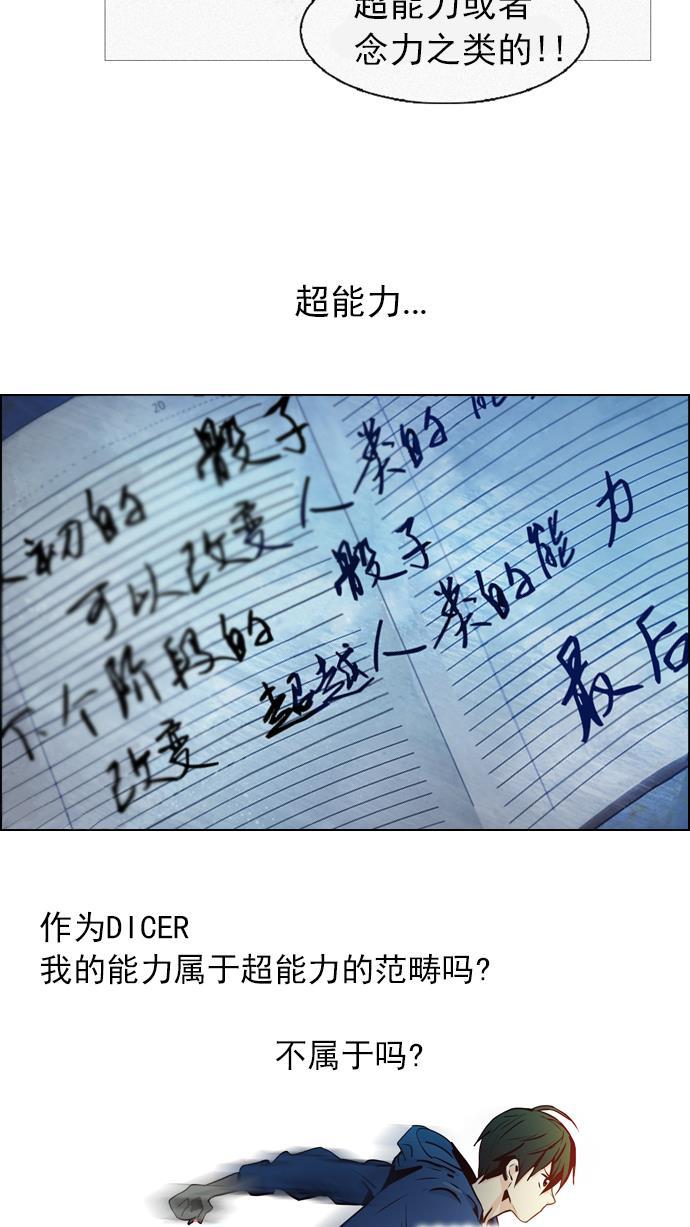 超能力或者
念力之类的!!
超能力...
20
初的 骰子
可以改变人类的能
下个阶段的 骰子
改变 超越人类的能力
最后
作为DICER
我的能力属于超能力的范畴吗?
不属于吗?